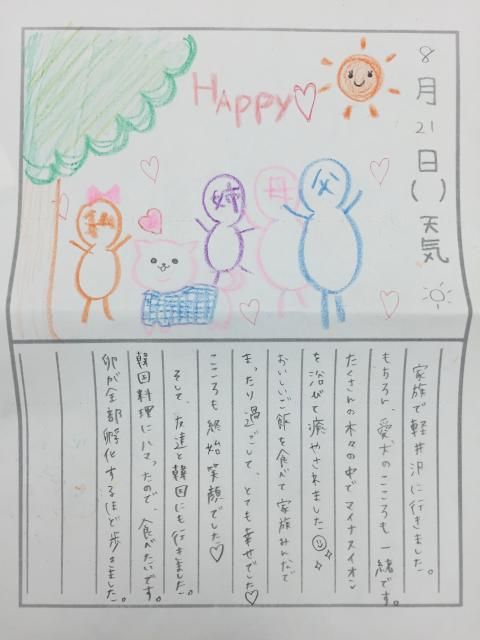 8月21日()天気
HAPPY♡
父
母
姉
私
家族で軽井沢に行きました。
もちろん、愛犬のこころも一緒です。
たくさんの木々の中でマイナスイオン
を浴びて癒やされました
おいしいご飯を食べて家族みんなで
まったり過ごして、とても幸せでした♡
こころも終始笑顔でした♡
そして、友達と韓国にも行きました。
韓国料理にハマったので、食べたいです。
卵が全部孵化するほど歩きました。